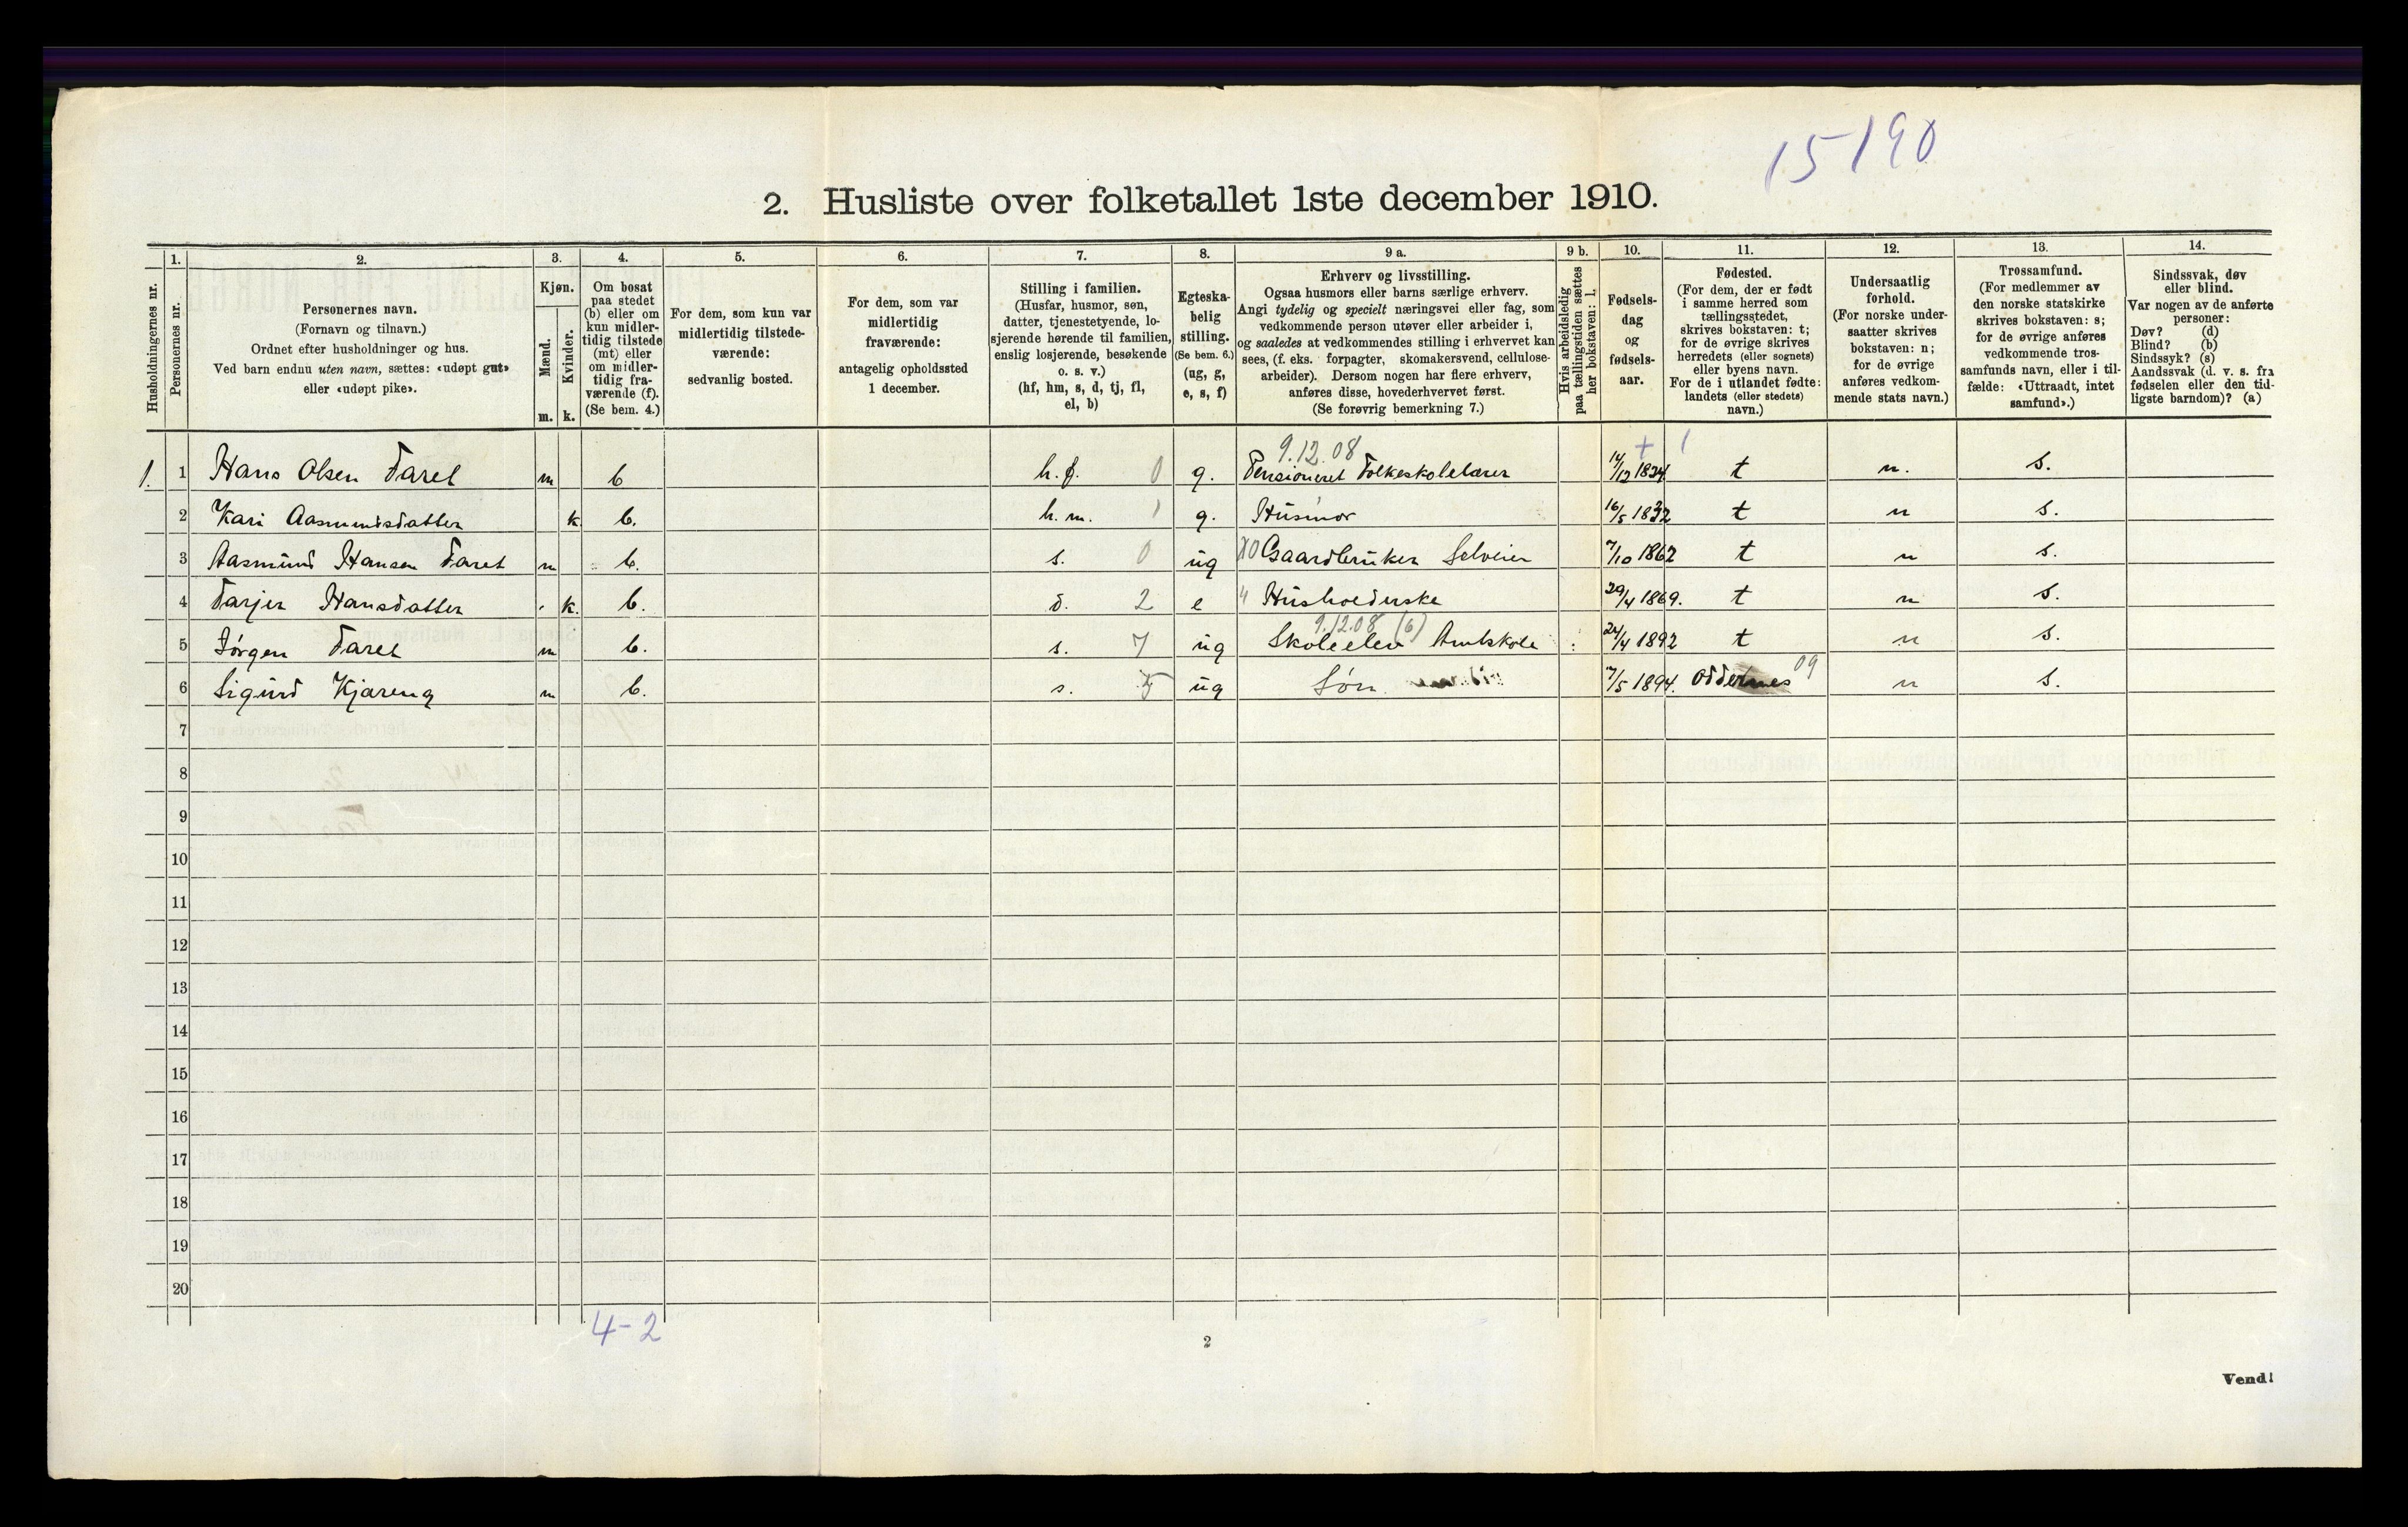 15190
2. Husliste over folketallet 1ste december 1910.
Husholdningernes nr.
1.
Personernes nr.
2.
Personernes navn.
(Fornavn og tilnavn.)
Ordnet efter husholdninger og hus.
Ved barn endnu uten navn, sættes: «udøpt gut»
eller «udøpt pike».
3.
Kjøn.
Mænd.
Kvinder.
m. k.
4.
Om bosat
paa stedet
(b) eller om
kun midler-
tidig tilstede
(mt) eller
om midler-
tidig fra-
værende (f).
(Se bem. 4.)
5.
For dem, som kun var
midlertidig tilstede-
værende:
sedvanlig bosted.
6.
For dem, som var
midlertidig
fraværende:
antagelig opholdssted
1 december.
7.
Stilling i familien.
(Husfar, husmor, søn,
datter, tjenestetyende, lo-
sjerende hørende til familien,
enslig losjerende, besøkende
o. s. v.)
(hf, hm, s, d, tj, fl,
el, b)
8.
Egteska-
belig
stilling.
(Se bem. 6.)
(ug, g,
e, s, f)
9 a.
Erhverv og livsstilling.
Ogsaa husmors eller barns særlige erhverv.
Angi tydelig og specielt næringsvei eller fag, som
vedkommende person utøver eller arbeider i,
og saaledes at vedkommendes stilling i erhvervet kan
sees, (f. eks. forpagter, skomakersvend, cellulose-
arbeider). Dersom nogen har flere erhverv,
anføres disse, hovederhvervet først.
(Se forøvrig bemerkning 7.)
9 b.
Hvis arbeidsledig
paa tællingstiden sættes
her bokstaven: l,
10.
Fødsels-
dag
og
fødsels-
aar.
11.
Fødested.
(For dem, der er født
i samme herred som
tællingsstedet,
skrives bokstaven: t;
for de øvrige skrives
herredets (eller sognets)
eller byens navn.
For de i utlandet fødte:
landets (eller stedets)
navn.)
12.
Undersaatlig
forhold.
(For norske under-
saatter skrives
bokstaven: n;
for de øvrige
anføres vedkom-
mende stats navn.)
13.
Trossamfund.
(For medlemmer av
den norske statskirke
skrives bokstaven: s;
for de øvrige anføres
vedkommende tros-
samfunds navn, eller i til-
fælde: «Uttraadt, intet
samfund».)
14.
Sindssvak, døv
eller blind.
Var nogen av de anførte
personer:
Døv? (d)
Blind? (b)
Sindssyk? (s)
Aandssvak (d. v. s. fra
fødselen eller den tid-
ligste barndom)? (a)
9.12.08 + 1
1. 1 Hans Olsen Faret m b h.f. 0 g. Pensioneret Folkeskolelærer 14/12 1834 t n. s.
2 Kari Aasmundsdatter k. b. h.m. 1 g. Husmor 16/5 1832 t n s.
3 Aasmund Hansen Faret m b. s. 0 ug X0 Gaardbruker Selveier 7/10 1862 t n s.
4 Tarjer Hansdatter k. b. d. 2 e 4 Husholderske 29/4 1869. t n s.
9.12.08 (6)
5 Jørgen Faret m b. s. 7 ug Skoleelev Amtskole 24/4 1892 t n s.
6 Sigurd Kjæreng m b. s. 5 ug Søn 7/5 1894. Oddernes 09 n s.
7
8
9
10
11
12
13
14
15
16
17
18
19
20
4-2
2
Vend!